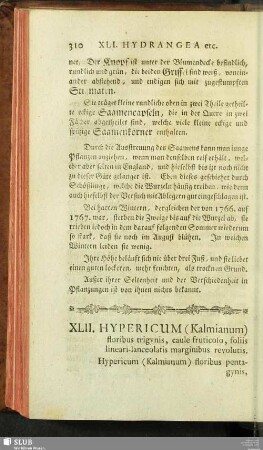 310 XLI. HYDRANGEA etc.
ner. Der Knopf ist unter der Blumendecke befindlich,
rundlich und grün, die beiden Griffel sind weiß, voneinander
abstehend, und endigen sich mit zugestumpften
Stigmaten.
Sie träget kleine rundliche oben in zwei Theile getheilte
eckige Saamencapseln, die in der Quere in zwei
Fächer abgetheilet sind, welche viele kleine eckige und
spitzige Saamenkörner enthalten.
Durch die Ausstreuung des Saamens kann man junge
Pflanzen anziehen, wenn man denselben reif erhält, welcher
aber selten in England, und hieselbst bis izt noch nicht
zu dieser Güte gelanget ist. Eben dieses geschiehet durch
Schößlinge, welche die Wurzeln häufig treiben, wie denn
auch hieselbst der Versuch mit Ablegern gut eingeschlagen ist.
Bei harten Wintern, dergleichen der von 1766, auf
1767. war, sterben die Zweige bis auf die Wurzel ab, sie
trieben jedoch in dem darauf folgenden Sommer wiederum
so stark, daß sie noch im August blühen. In weichen
Wintern leiden sie wenig.
Ihre Höhe beläuft sich nie über drei Fuß, und sie lieber
einen guten lockeren, mehr feuchten, als trocknen Grund.
Ausser ihrer Seltenheit und der Verschiedenheit in
Pflanzungen ist von ihnen nichts bekannt.
XLII. HYPERICUM (Kalmianum)
floribus trigynis, caule fruticoso, foliis
lineari-lanceolatis marginibus revolutis.
Hypericum (Kalmianum) floribus penta-
gynis,
SLUB